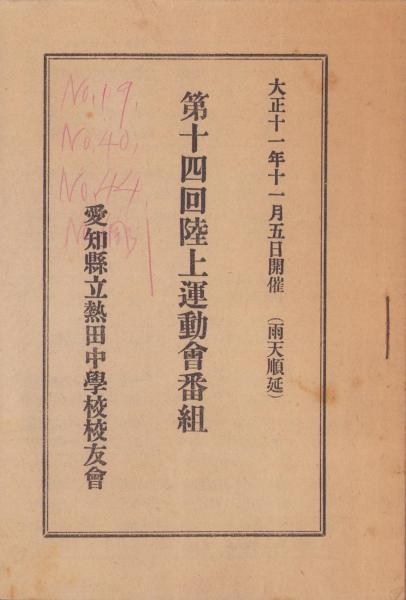 大正十一年十一月五日開催 （雨天順延）
第十四回陸上運動會番組
愛知縣立熱田中學校校友會
No,19,
No,40,
No,44,